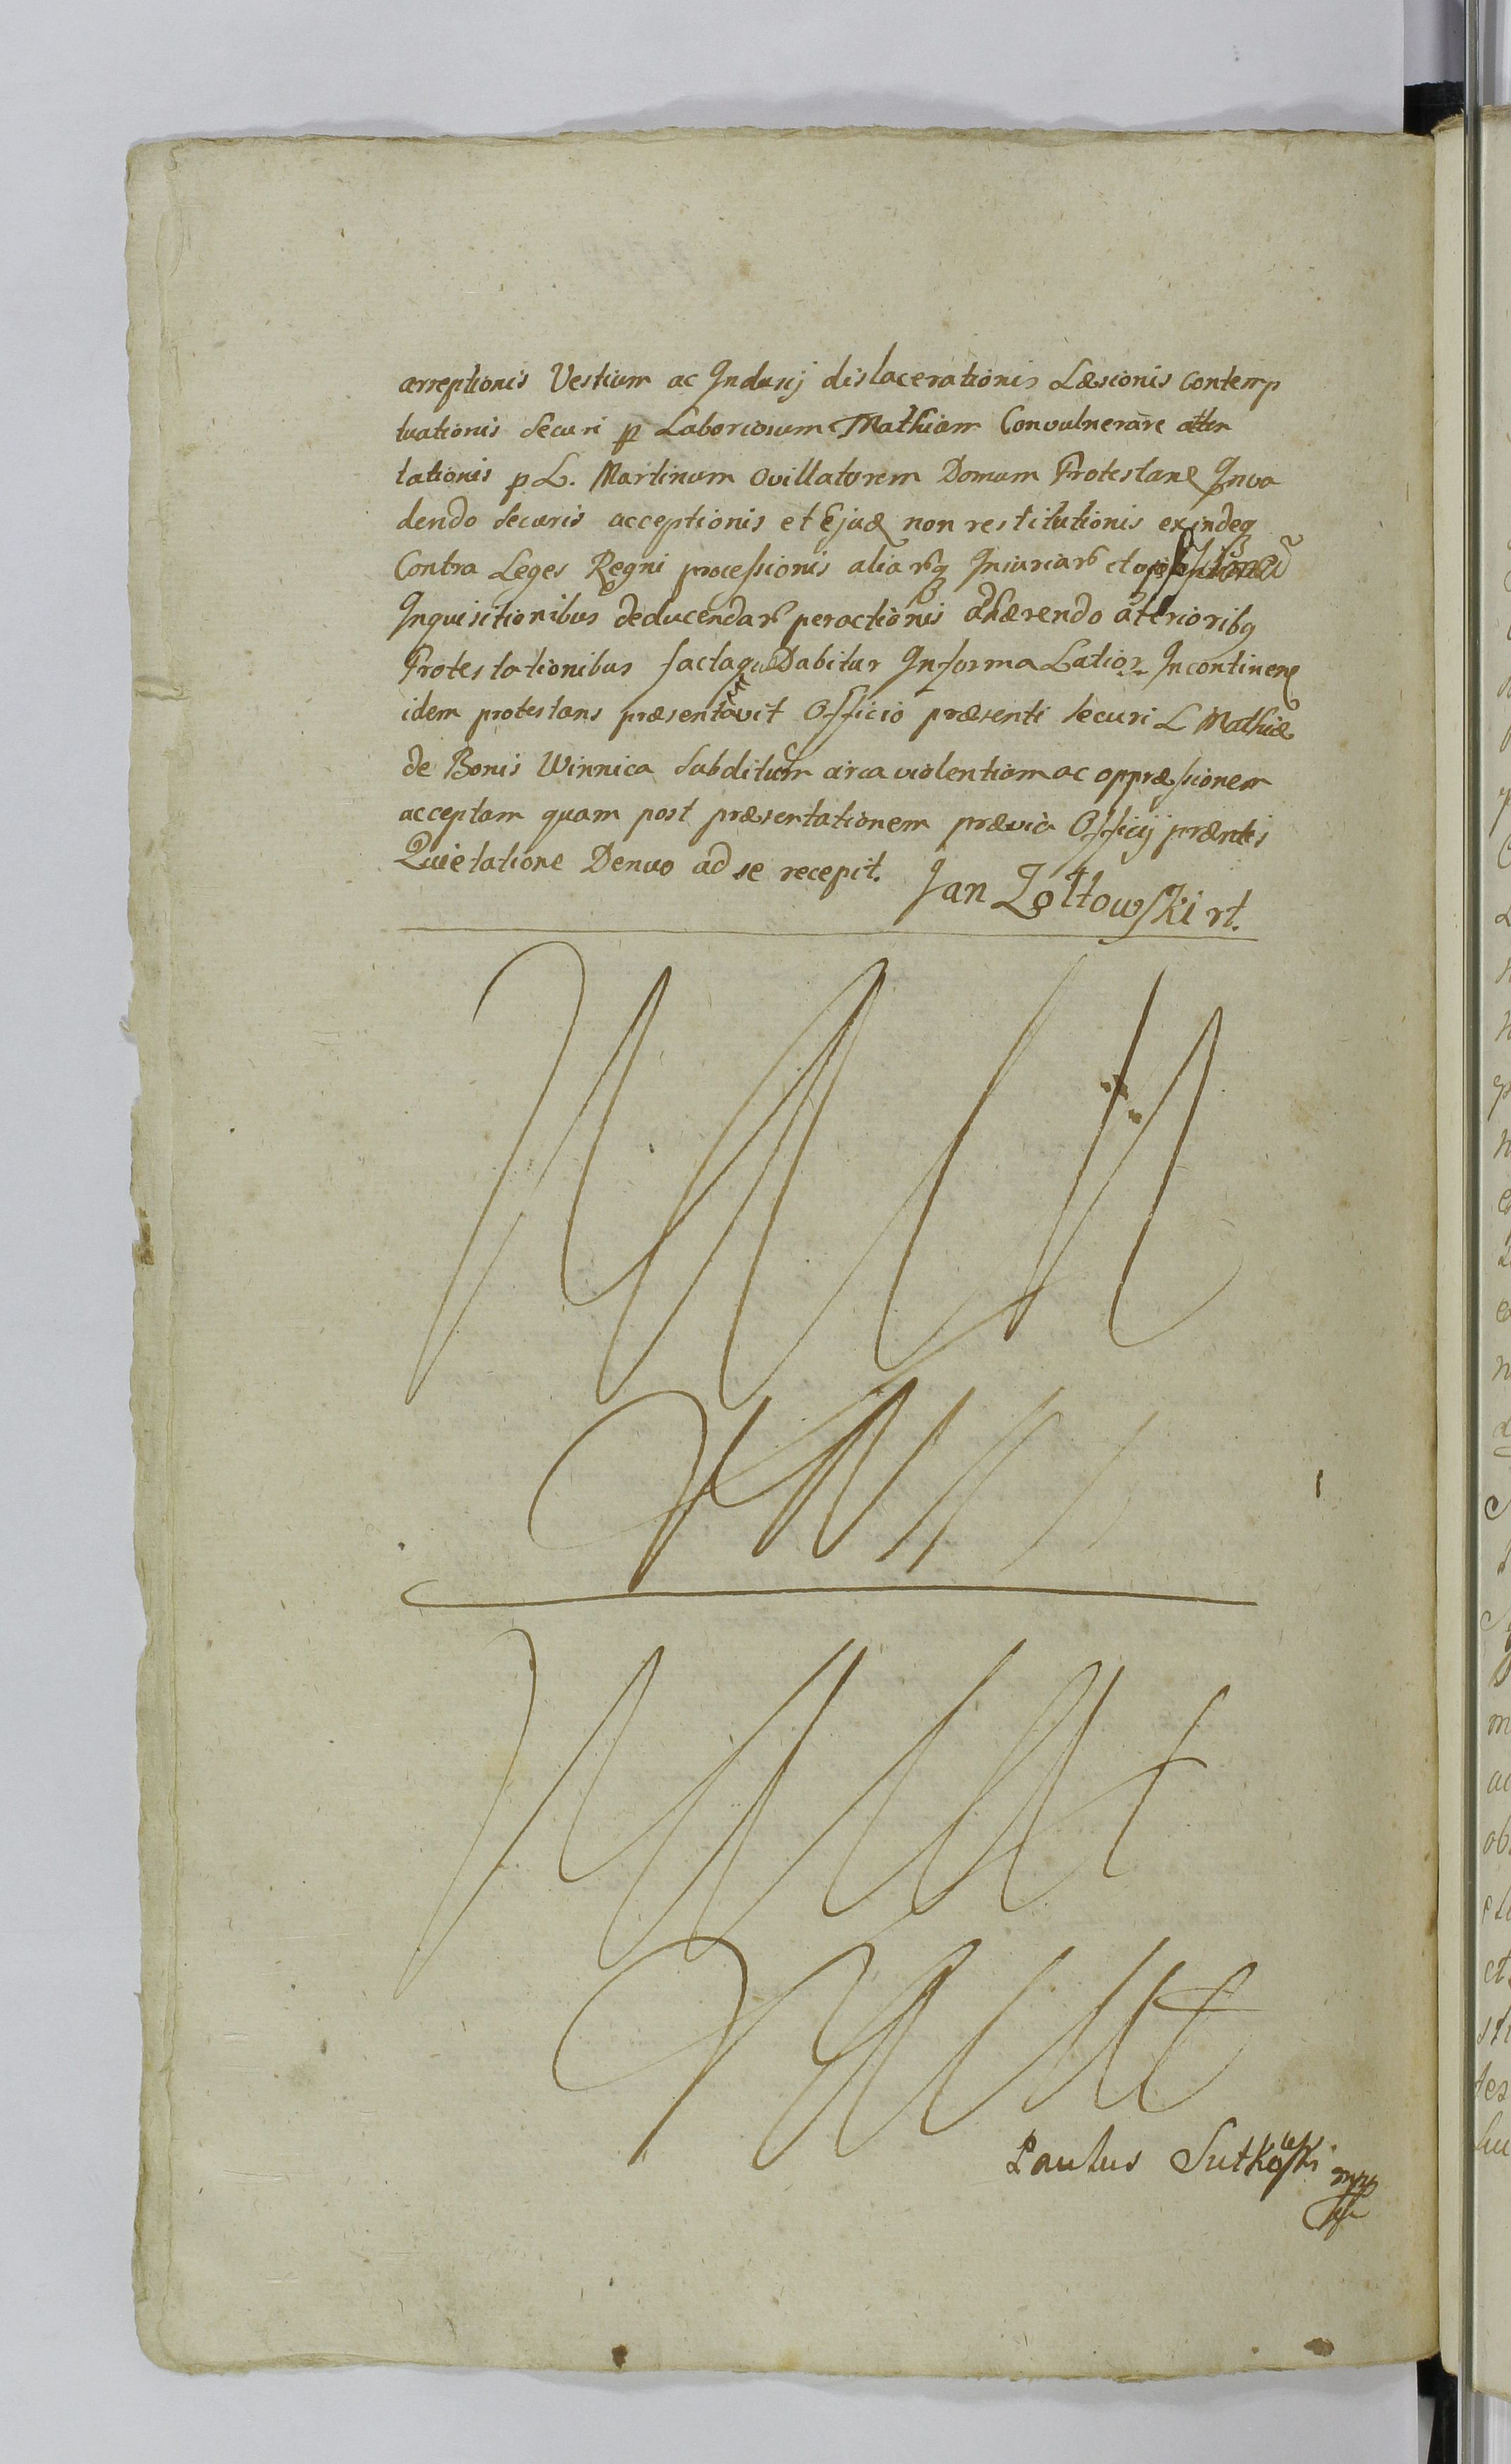 arreptionis Vestium ac Indusij dislacerationis Læsionis contemp
tuationis securi p Laboriosum Mathiam Convulnerare atten
tationis p L. Martinum ovillatorem Domum Protestane Inva
dendo securis acceptionis et Ejusq non restitutionis exindeq
Contra Leges Regni processionis aliarq Iniuriar et
Inquisitionibus deducendar peractionis adhærendo aterioribq
Protestationibus factaque Dabitur In forma Latior Incontinen
idem protestans præsentavit Officio præsenti securi L Mathiæ
de Bonis Winnica subditum circa violentiam ac oppræssionem
acceptam quam post præsentationem prævia Officij præntis
Quietatione Denuo ad se recepit. Jan Zołtowski rt.
Paulus Sutkowski mpp